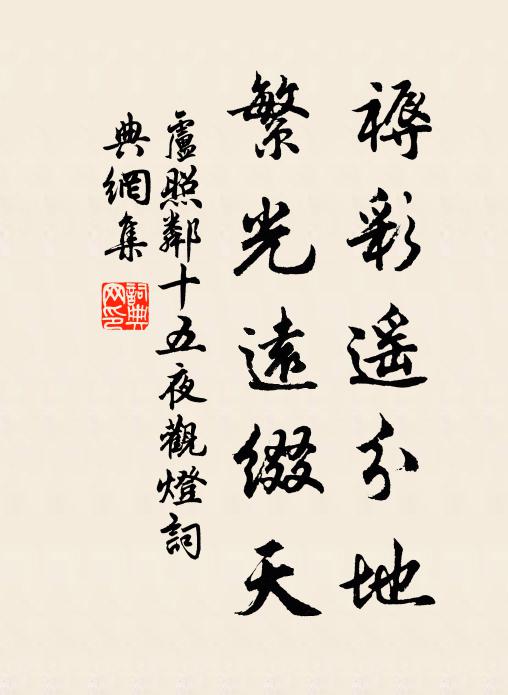 褥彩遙分地
繁光遠綴天
盧照鄰十五夜觀燈詞
典網集
詞典
网印